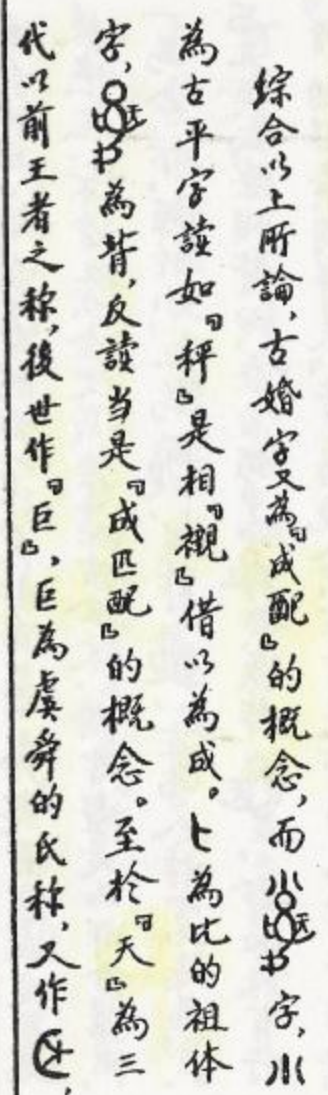 綜合以上所論，古婚字又為『成配』的概念，而字，川
為古平字讀如『秤』是相『襯』借以為成。㇄為比的祖体
字，為背，反讀当是『成匹配』的概念。至於『天』為三
代以前王者之称，後世作『巨』，巨為虞舜的氏称，又作，